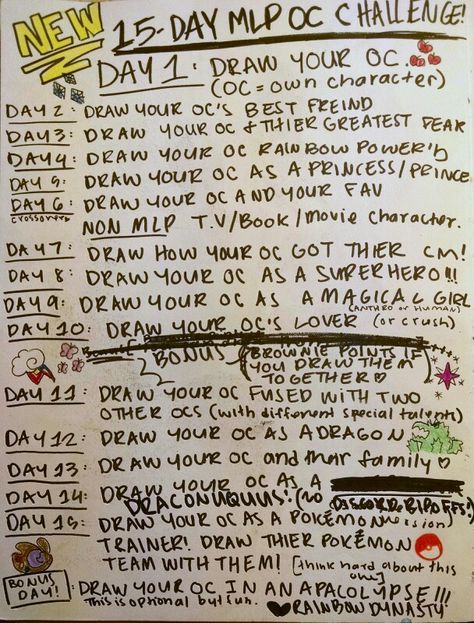 NEW
15-DAY MLP OC CHALLENGE!
DAY 1: DRAW YOUR OC.
(OC = own character)
DAY 2: DRAW YOUR OC'S BEST FREIND
DAY 3: DRAW YOUR OC & THIER GREATEST FEAR
DAY 4: DRAW YOUR OC RAINBOW POWER'D
DAY 5: DRAW YOUR OC AS A PRINCESS/PRINCE
DAY 6: DRAW YOUR OC AND YOUR FAV
CROSSOVER
NON MLP T.V/Book/Movie character.
DAY 7: DRAW HOW YOUR OC GOT THIER CM!
DAY 8: DRAW YOUR OC AS A SUPERHERO!!!
DAY 9: DRAW YOUR OC AS A MAGICAL GIRL
(ANTHRO or HUMAN)
DAY 10: DRAW YOUR OC'S LOVER (or crush)
BONUS (BROWNIE POINTS IF
YOU DRAW THEM
TOGETHER♡
DAY 11: DRAW YOUR OC FUSED WITH TWO
OTHER OCS (with different special talents)
DAY 12: DRAW YOUR OC AS A DRAGON
DAY 13: DRAW YOUR OC and their family ♡
DAY 14: DRAW YOUR OC AS A
DRACONUQUUS! (NO DISCORD RIPOFFS!)
DAY 15: DRAW YOUR OC AS A POKÉMON
TRAINER! DRAW THIER POKÉMON
TEAM WITH THEM! [think hard about this one]
BONUS DAY!: DRAW YOUR OC IN AN APACOLYPSE!!!
This is optional but fun. ♥RAINBOWDYNASTY